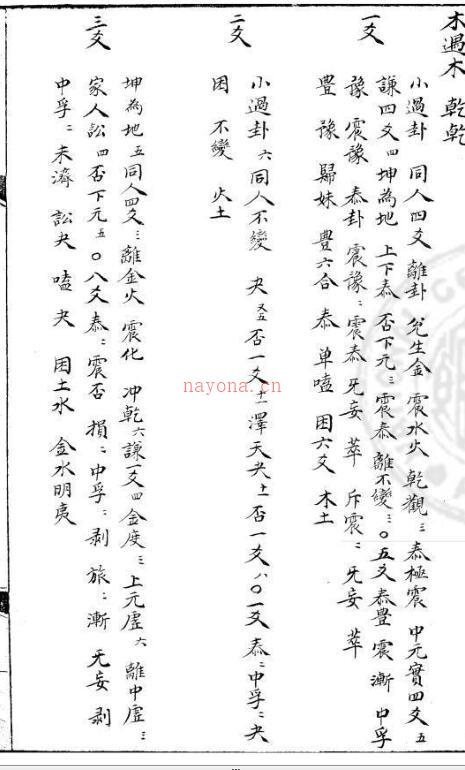 木過木 乾乾
一爻
小過卦 同人四爻 離卦 兌生金 震水火 乾觀三 泰極震 中元實四爻五
謙四爻四 坤為地 上下泰 否下元三 震泰 離不變三 〇五爻泰豐 震漸 中孚
豫 震豫 泰卦 震豫二 震泰 旡妄 萃 斥震二 旡妄 萃
豐 豫 歸妹 豊六合 泰 单嗑 困六爻 木土
二爻
小過卦六 同人不變 夬 又五 否一爻十一 澤天夬十一 否一爻八 〇一爻泰二 中孚二 夬
困 不變 火土
三爻
坤為地五 同人四爻三 離金火 震化 冲乾六 謙一爻四 金度三 上元虛六 離中虛三
家人訟四 否下元五 〇八爻泰二 震否 損二 中孚二 剥 旅二 漸 无妄 剥
中孚二 未濟 訟夬 嗑 夬 困土水 金水明夷
nayona.cn